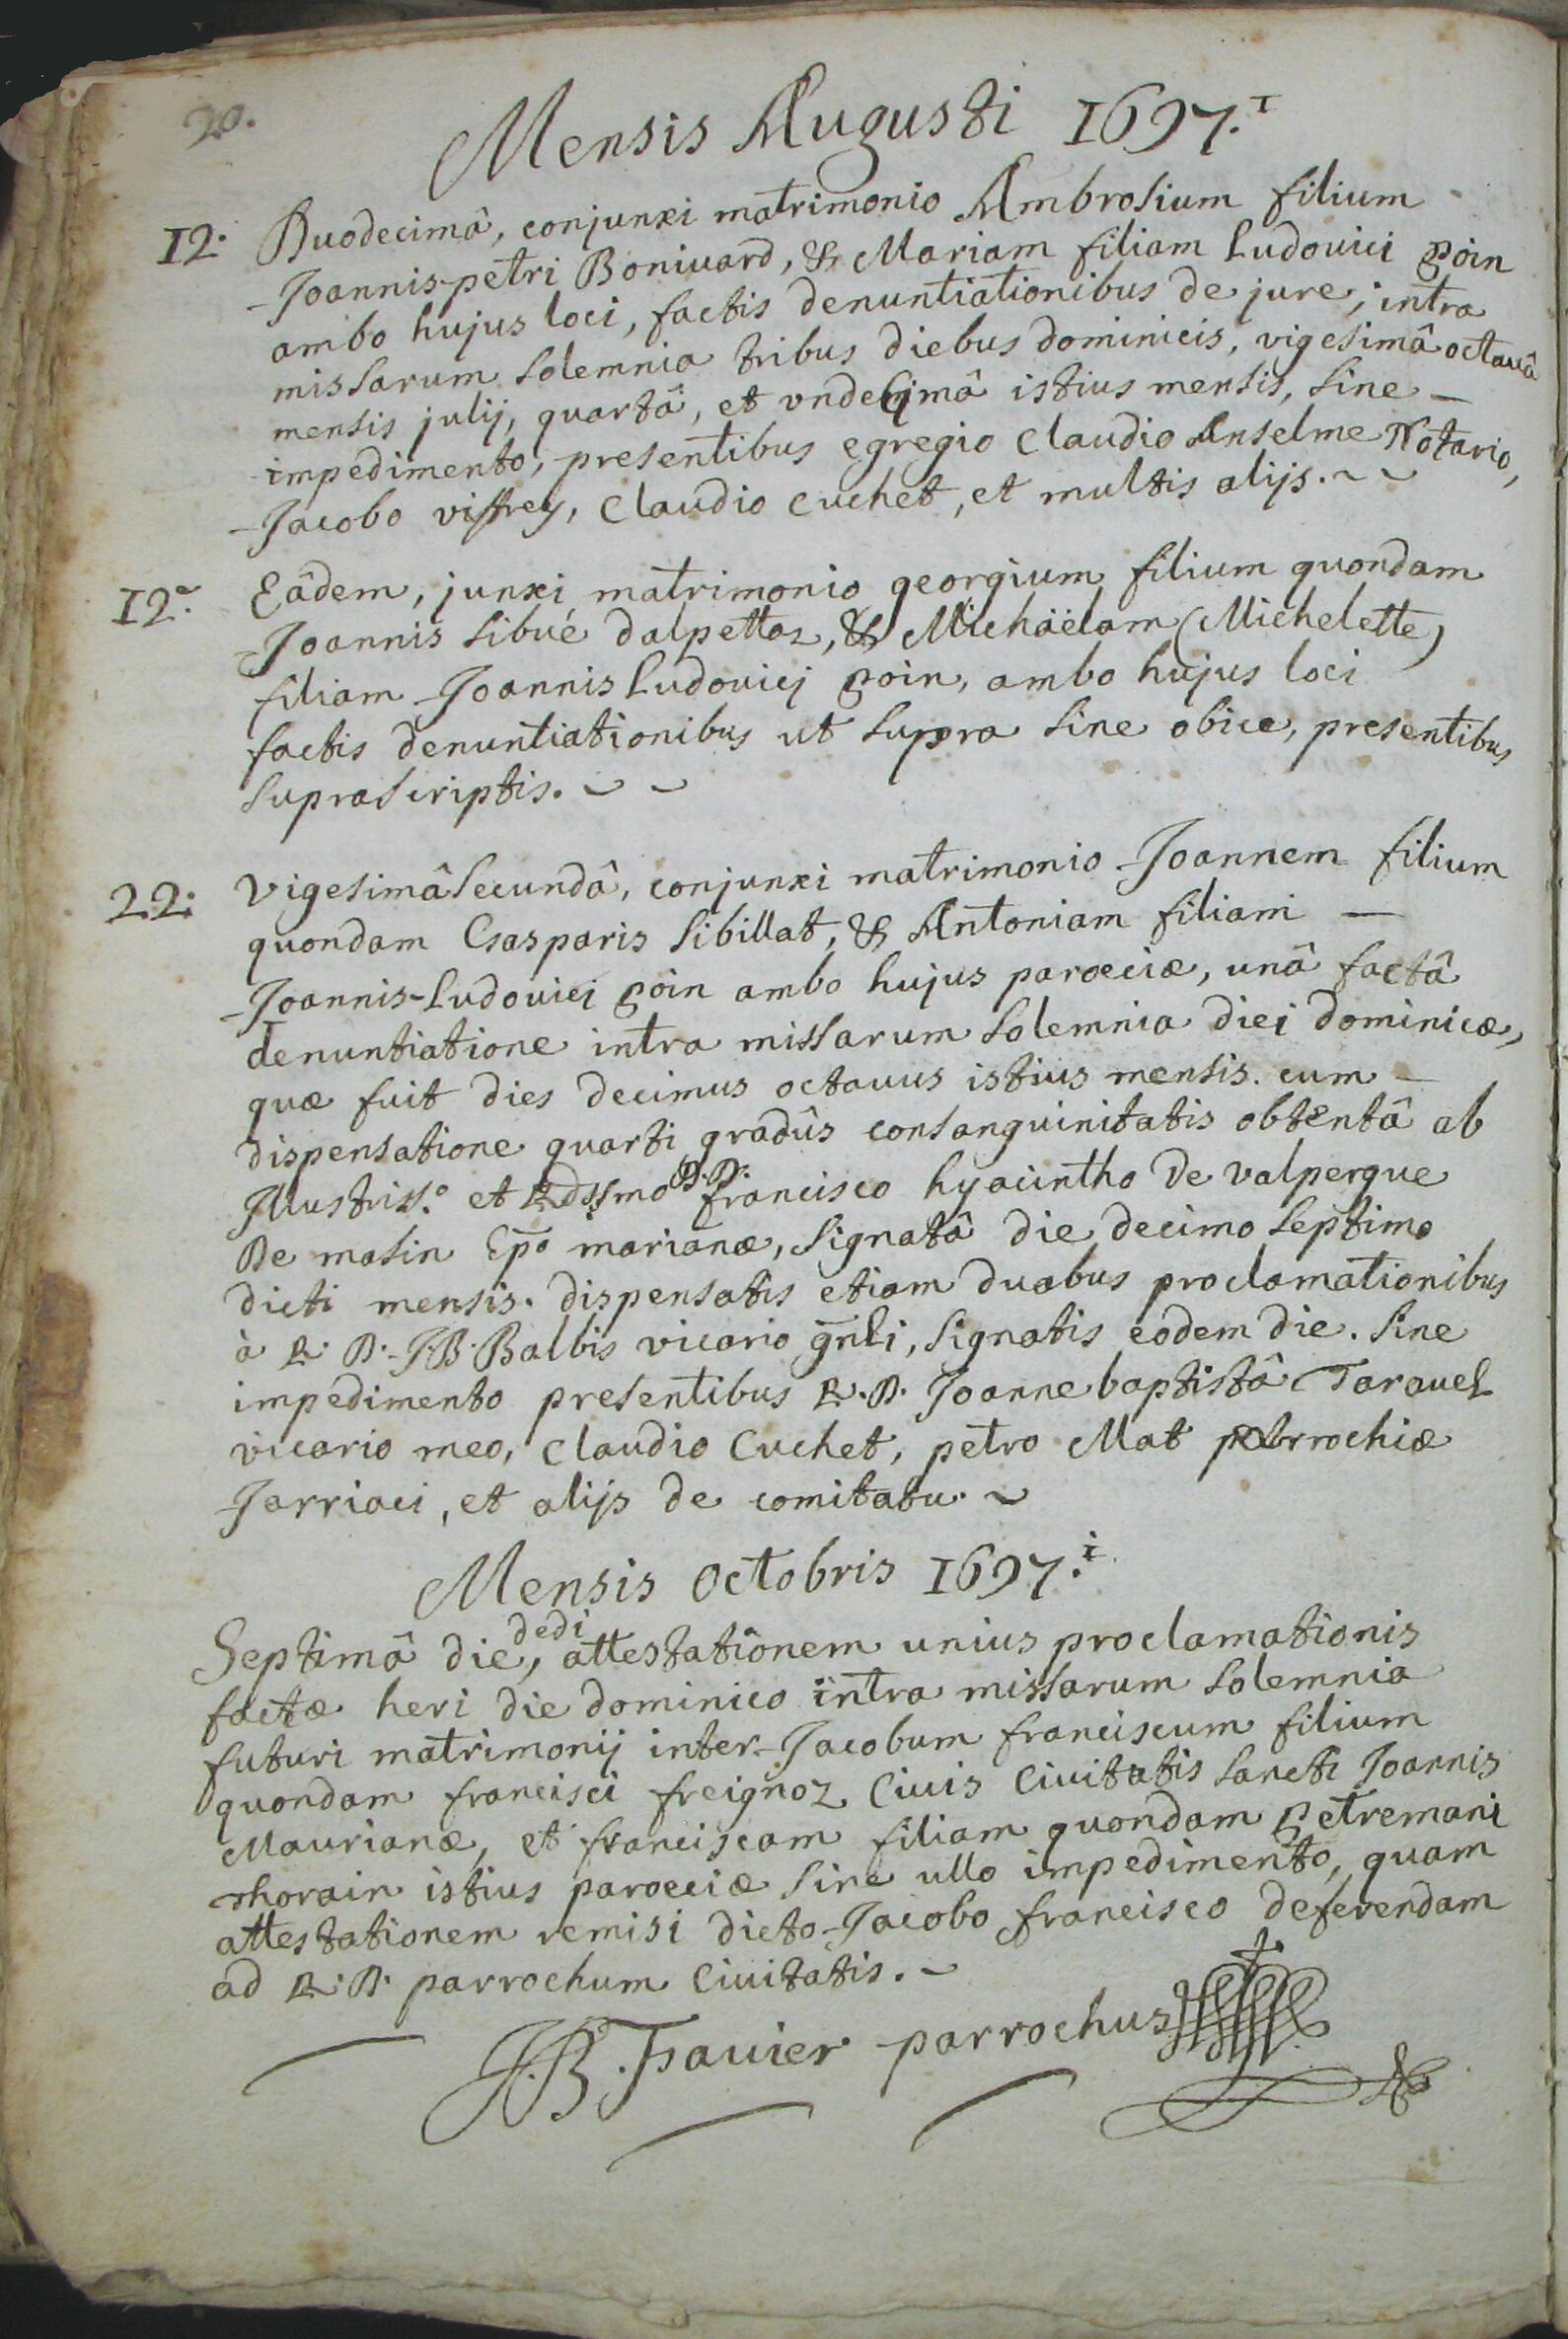 20.
Mensis Augusti 1697.i
12. Duodecimâ, conjunxi matrimonio Ambrosium filium
Joannis-petri Boniuard, & Mariam filiam Ludouici Poin
ambo hujus loci, factis denuntiationibus de jure, intra
missarum solemnia tribus diebus dominicis, vigesimâ octauâ
mensis julij, quartâ, et vndecimâ istius mensis, sine
impedimento, presentibus egregio Claudio Anselme Notario,
Jacobo viffrey, Claudio Cuchet, et multis alijs.
12a. Eâdem, junxi matrimonio georgium filium quondam
Joannis sibué dalpettaz, & Michaëlam (Michelette)
filiam Joannis Ludouicj Poin, ambo hujus loci
factis denuntiationibus ut supra sine obice, presentibus
suprascriptis.
22: vigesimâsecundâ, conjunxi matrimonio Joannem filium
quondam Gasparis Sibillat, & Antoniam filiam
Joannis-Ludouici Poin ambo hujus parœciæ, unâ factâ
denuntiatione intra missarum solemnia diei dominicæ,
quæ fuit dies decimus octauus istius mensis. cum
dispensatione quarti gradûs consanguinitatis obtentâ ab
Illustriss.o et Rdssmo D.D. francisco hyacintho De valpergue
De masin Epõ marianæ, signatâ die decimo septimo
dicti mensis. dispensatis etiam duabus proclamationibus
à R. D. J.B. Balbis vicario gñli, signatis eodem die. sine
impedimento presentibus R.D. Joannebaptistâ Tarauel
vicario meo, Claudio Cuchet, petro Mat parrochiæ
Jarriaci, et alijs de comitatu.
Mensis Octobris 1697.i
Septimâ die, dedi attestationem unius proclamationis
factæ heri die dominico intra missarum solemnia
futuri matrimonij inter Jacobum franciscum filium
quondam francisci freignoz Ciuis Ciuitatis sancti Joannis
Maurianæ, et franciscam filiam quondam Petremani
rhorain istius parœciæ sine ullo impedimento, quam
attestationem remisi dicto Jacobo francisco deferendam
ad R.D. parrochum Ciuitatis.
J.B. Fauier parrochus